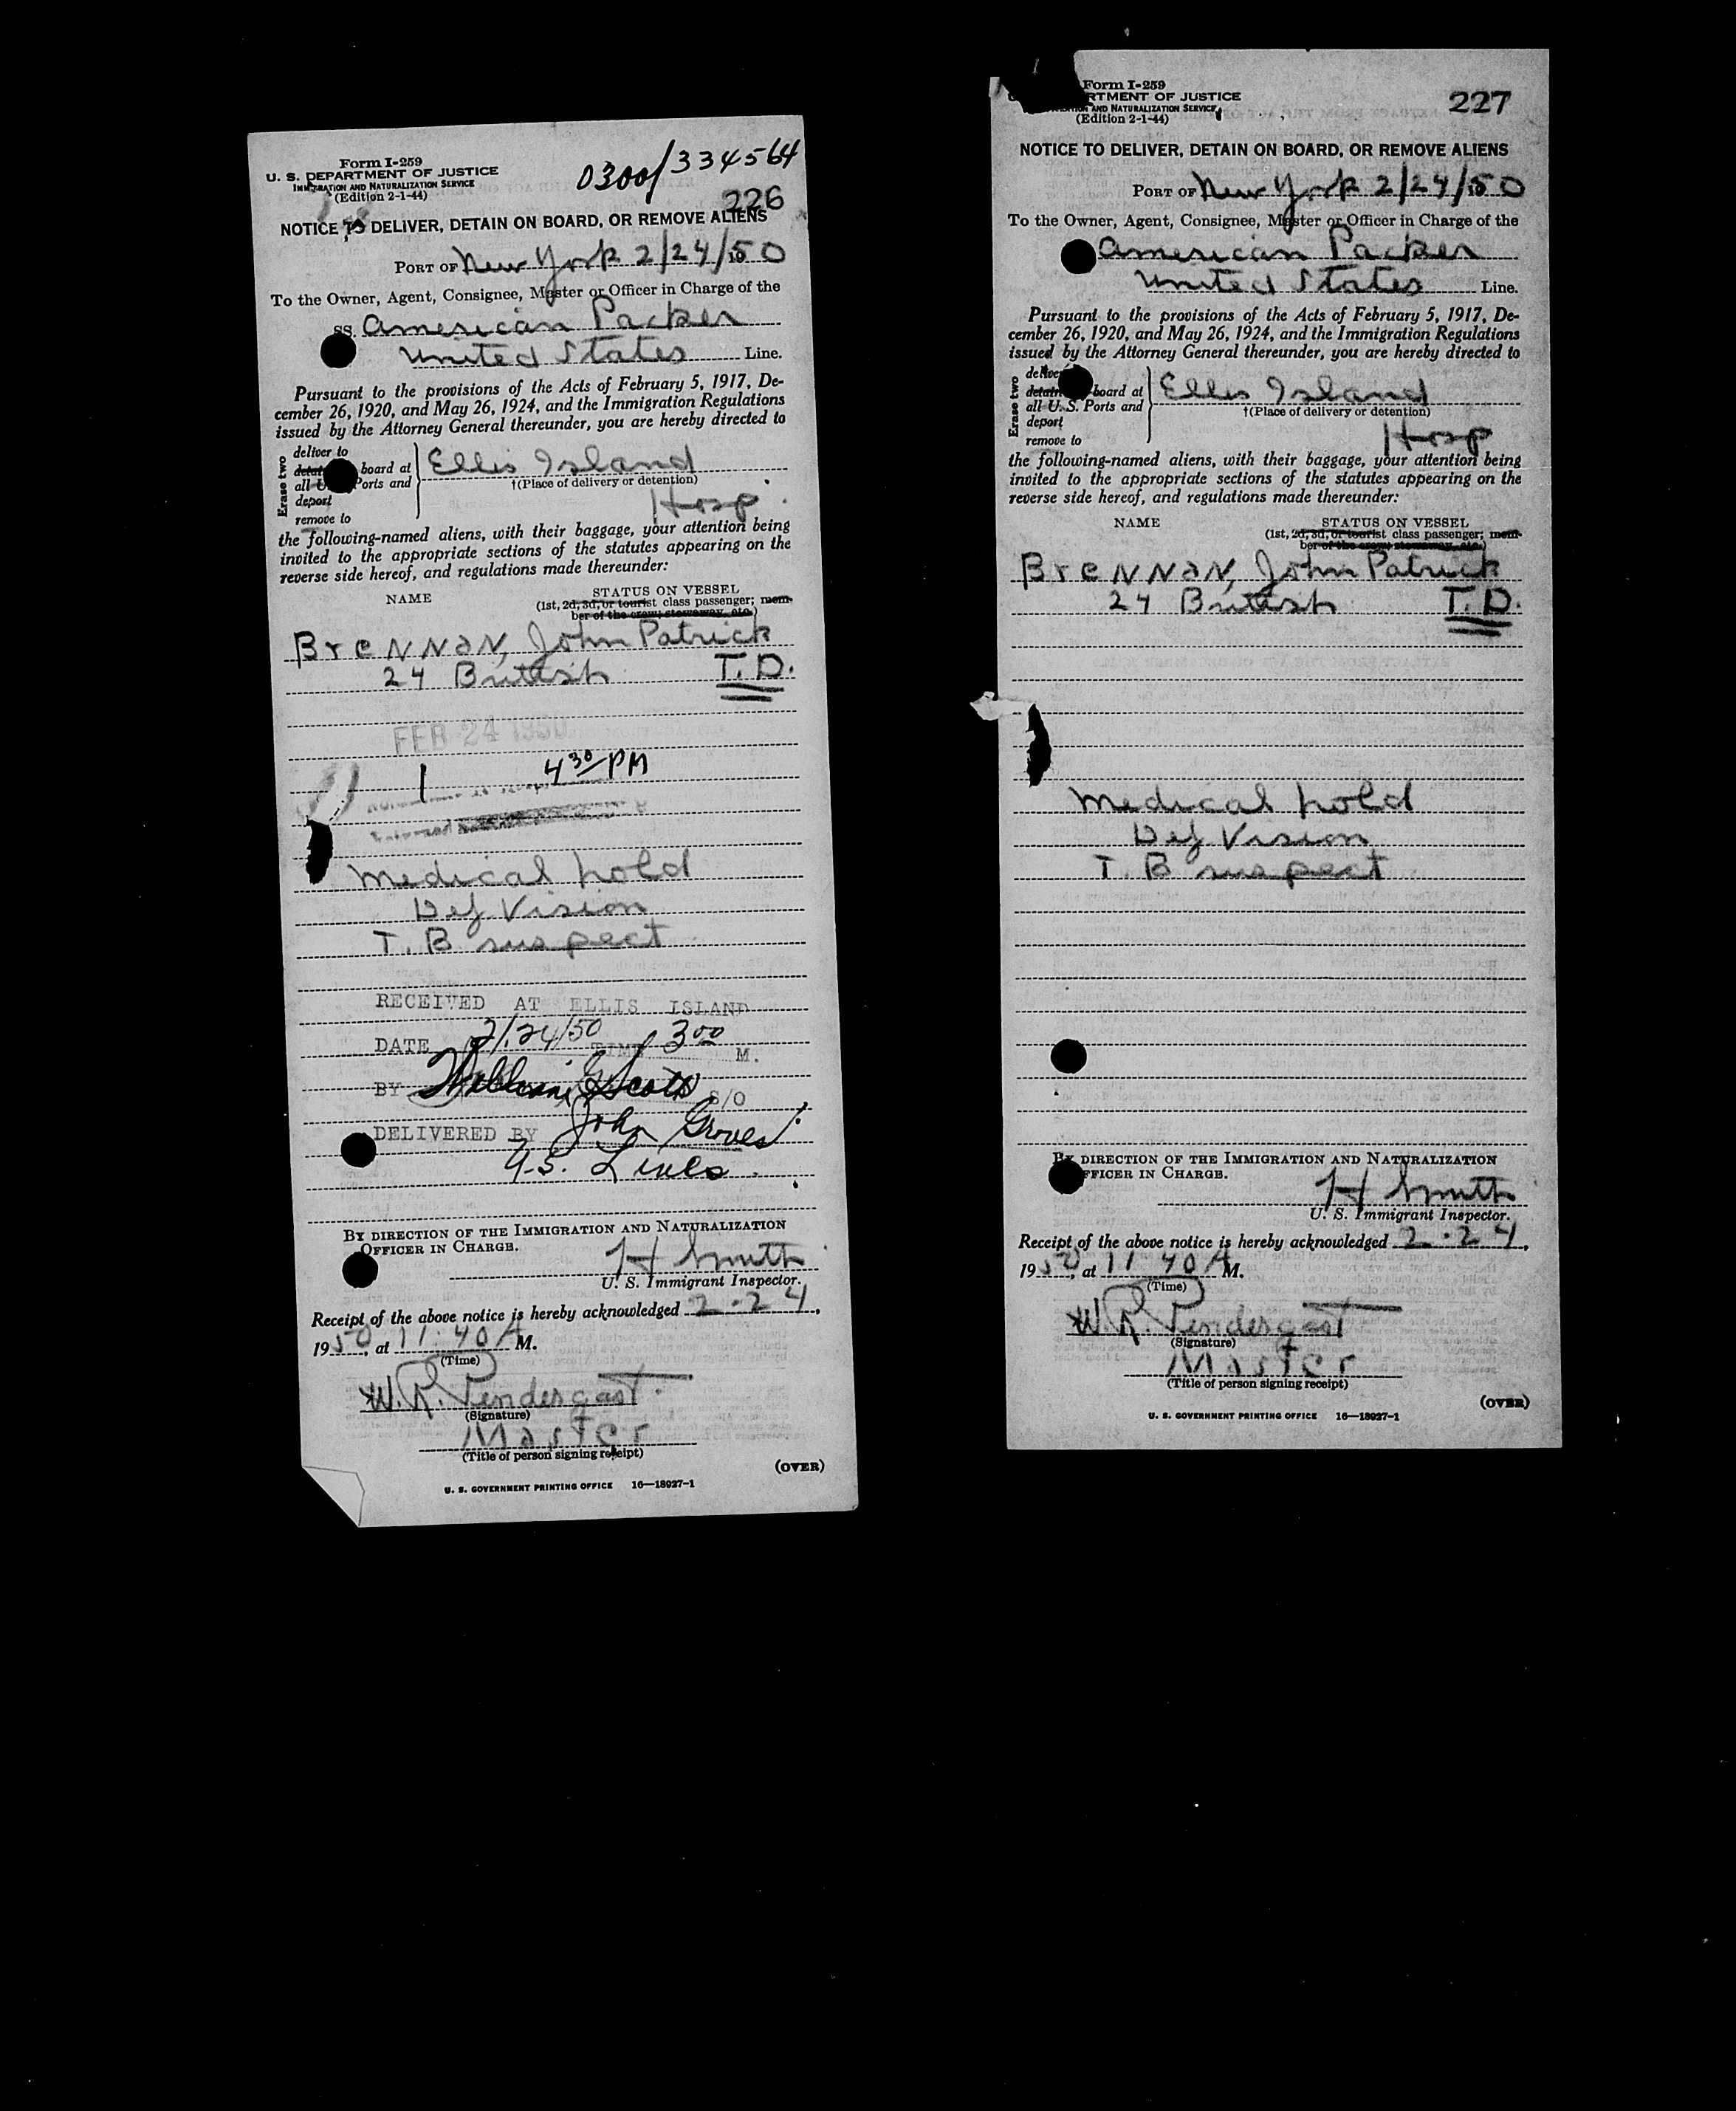 Form I-259
U. S. DEPARTMENT OF JUSTICE
IMMIGRATION AND NATURALIZATION SERVICE
(Edition 2-1-44)
0300/334564
226
NOTICE TO DELIVER, DETAIN ON BOARD, OR REMOVE ALIENS
PORT OF New York 2/24/50
To the Owner, Agent, Consignee, Master or Officer in Charge of the
SS. American Packer
United States Line.
Pursuant to the provisions of the Acts of February 5, 1917, De-
cember 26, 1920, and May 26, 1924, and the Immigration Regulations
issued by the Attorney General thereunder, you are hereby directed to
Erase two
deliver to
board at
all Ports and
deport
remove to
Ellis Island
†(Place of delivery or detention)
Hosp.
the following-named aliens, with their baggage, your attention being
invited to the appropriate sections of the statutes appearing on the
reverse side hereof, and regulations made thereunder:
NAME
STATUS ON VESSEL
(1st, 2d, 3d, or tourist class passenger; mem-
ber of the crew; stowaway, etc.)
Brennan, John Patrick
24 British T.D.
FEB 24 1950
1 4 30 PM
Medical hold
Def Vision
T. B suspect
RECEIVED AT ELLIS ISLAND
DATE 2/24/50 TIME 3 00 M.
BY William G Scott S/O
DELIVERED BY John Groves
U.S. Lines.
BY DIRECTION OF THE IMMIGRATION AND NATURALIZATION
OFFICER IN CHARGE.
H Smith
U. S. Immigrant Inspector.
Receipt of the above notice is hereby acknowledged 2-24,
1950, at 11:40 A M.
(Time)
W. R. Pendergast
(Signature)
Master
(Title of person signing receipt)
(OVER)
U. S. GOVERNMENT PRINTING OFFICE 16—18927-1
Form I-259
DEPARTMENT OF JUSTICE
AND NATURALIZATION SERVICE
(Edition 2-1-44)
227
NOTICE TO DELIVER, DETAIN ON BOARD, OR REMOVE ALIENS
PORT OF New York 2/24/50
To the Owner, Agent, Consignee, Master or Officer in Charge of the
American Packer
United States Line.
Pursuant to the provisions of the Acts of February 5, 1917, De-
cember 26, 1920, and May 26, 1924, and the Immigration Regulations
issued by the Attorney General thereunder, you are hereby directed to
Erase two
deliver
detain board at
all U. S. Ports and
deport
remove to
Ellis Island
†(Place of delivery or detention)
Hosp
the following-named aliens, with their baggage, your attention being
invited to the appropriate sections of the statutes appearing on the
reverse side hereof, and regulations made thereunder:
NAME
STATUS ON VESSEL
(1st, 2d, 3d, or tourist class passenger; mem-
ber of the crew; stowaway, etc.)
Brennan, John Patrick
24 British T.D.
Medical hold
Def Vision
T. B suspect
BY DIRECTION OF THE IMMIGRATION AND NATURALIZATION
OFFICER IN CHARGE.
H Smith
U. S. Immigrant Inspector.
Receipt of the above notice is hereby acknowledged 2-24,
1950, at 11 40 A M.
(Time)
W. R. Pendergast
(Signature)
Master
(Title of person signing receipt)
(OVER)
U. S. GOVERNMENT PRINTING OFFICE 16—18927-1